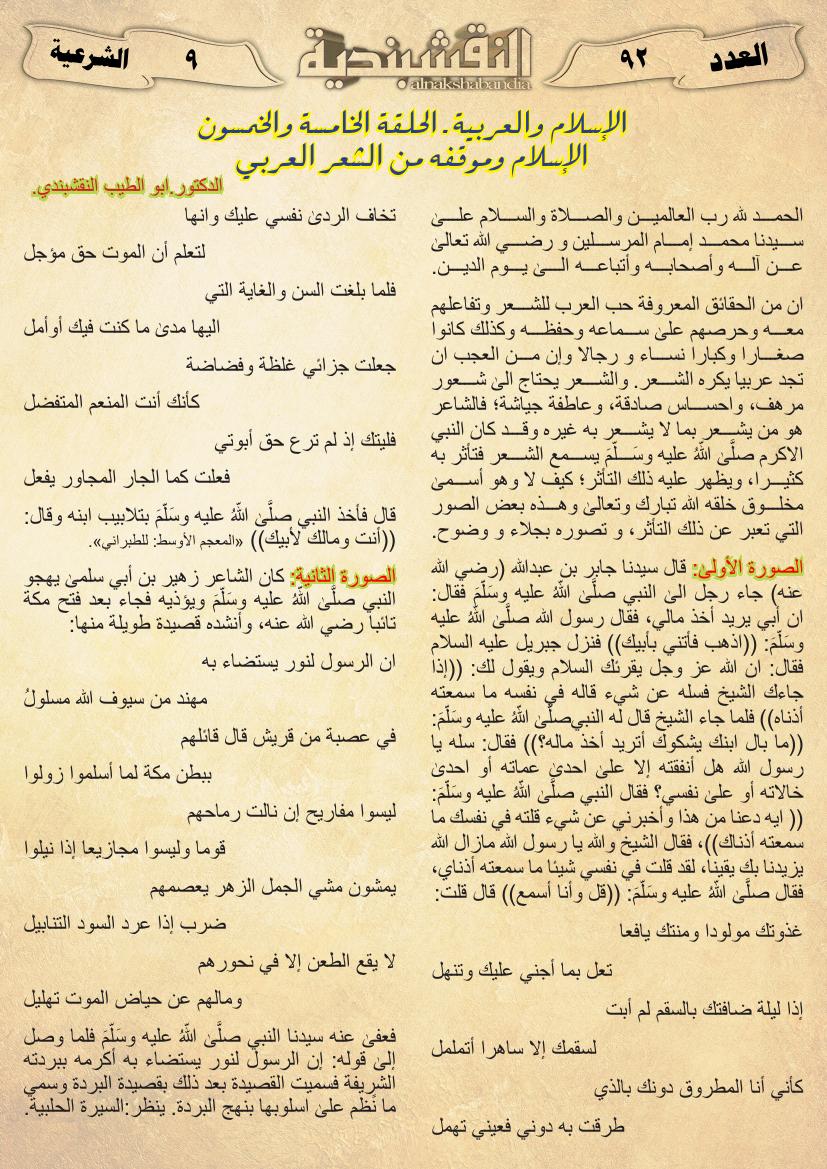 العدد
٩٢
النقشبندية
alnakshabandia
٩
الشرعية
الإسلام والعربية. الحلقة الخامسة والخمسون
الإسلام وموقفه من الشعر العربي
الدكتور.ابو الطيب النقشبندي.
الحمـــد لله رب العالميـــن والصـــلاة والســـلام علـــىٰ
ســـيدنا محمـــد إمـــام المرســـلين و رضـــي الله تعالىٰ
عـــن آلـــه وأصحابـــه وأتباعـــه الـــىٰ يـــوم الديـــن.
ان من الحقائق المعروفة حب العرب للشـــعر وتفاعلهم
معـــه وحرصهم علىٰ ســـماعه وحفظـــه وكذلك كانوا
صغـــارا وكبارا نســـاء و رجالا وإن مـــن العجب ان
تجد عربيا يكره الشـــعر. والشـــعر يحتاج الىٰ شـــعور
مرهف، واحســـاس صادقة، وعاطفة جياشة؛ فالشاعر
هو من يشـــعر بما لا يشـــعر به غيره وقـــد كان النبي
الاكرم صلَّىٰ اللهُ عليه وَســـلَّمَ يســـمع الشـــعر فتأثر به
كثيـــرا، ويظهر عليه ذلك التأثر؛ كيف لا وهو أســـمىٰ
مخلـــوق خلقه الله تبارك وتعالىٰ وهـــذه بعض الصور
التي تعبر عن ذلك التأثر، و تصوره بجلاء و وضوح.
الصورة الأولىٰ: قال سيدنا جابر بن عبدالله (رضي الله
عنه) جاء رجل الىٰ النبي صلَّىٰ اللهُ عليه وَسلَّمَ فقال:
ان أبي يريد أخذ مالي، فقال رسول الله صلَّىٰ اللهُ عليه
وسَلَّمَ: ((اذهب فأتني بأبيك)) فنزل جبريل عليه السلام
فقال: ان الله عز وجل يقرئك السلام ويقول لك: ((إذا
جاءك الشيخ فسله عن شيء قاله في نفسه ما سمعته
أذناه)) فلما جاء الشيخ قال له النبيصلَّىٰ اللهُ عليه وسَلَّمَ:
((ما بال ابنك يشكوك أتريد أخذ ماله؟)) فقال: سله يا
رسول الله هل أنفقته إلا علىٰ احدىٰ عماته أو احدىٰ
خالاته أو علىٰ نفسي؟ فقال النبي صلَّىٰ اللهُ عليه وسَلَّمَ:
(( ايه دعنا من هذا وأخبرني عن شيء قلته في نفسك ما
سمعته أذناك))، فقال الشيخ والله يا رسول الله مازال الله
يزيدنا بك يقينا، لقد قلت في نفسي شيئا ما سمعته أذناي،
فقال صلَّىٰ اللهُ عليه وسَلَّمَ: ((قل وأنا أسمع)) قال قلت:
غذوتك مولودا ومنتك يافعا
تعل بما أجني عليك وتنهل
إذا ليلة ضافتك بالسقم لم أبت
لسقمك إلا ساهرا أتململ
كأني أنا المطروق دونك بالذي
طرقت به دوني فعيني تهمل
تخاف الردىٰ نفسي عليك وانها
لتعلم أن الموت حق مؤجل
فلما بلغت السن والغاية التي
اليها مدىٰ ما كنت فيك أوأمل
جعلت جزائي غلظة وفضاضة
كأنك أنت المنعم المتفضل
فليتك إذ لم ترع حق أبوتي
فعلت كما الجار المجاور يفعل
قال فأخذ النبي صلَّىٰ اللهُ عليه وسَلَّمَ بتلابيب ابنه وقال:
((أنت ومالك لأبيك)) «المعجم الأوسط: للطبراني».
الصورة الثانية: كان الشاعر زهير بن أبي سلمىٰ يهجو
النبي صلَّىٰ اللهُ عليه وسَلَّمَ ويؤذيه فجاء بعد فتح مكة
تائبا رضي الله عنه، وأنشده قصيدة طويلة منها:
ان الرسول لنور يستضاء به
مهند من سيوف الله مسلولُ
في عصبة من قريش قال قائلهم
ببطن مكة لما أسلموا زولوا
ليسوا مفاريح إن نالت رماحهم
قوما وليسوا مجازيعا إذا نيلوا
يمشون مشي الجمل الزهر يعصمهم
ضرب إذا عرد السود التنابيل
لا يقع الطعن إلا في نحورهم
ومالهم عن حياض الموت تهليل
فعفىٰ عنه سيدنا النبي صلَّىٰ اللهُ عليه وسَلَّمَ فلما وصل
إلىٰ قوله: إن الرسول لنور يستضاء به أكرمه ببردته
الشريفة فسميت القصيدة بعد ذلك بقصيدة البردة وسمي
ما نُظم علىٰ اسلوبها بنهج البردة. ينظر:السيرة الحلبية.